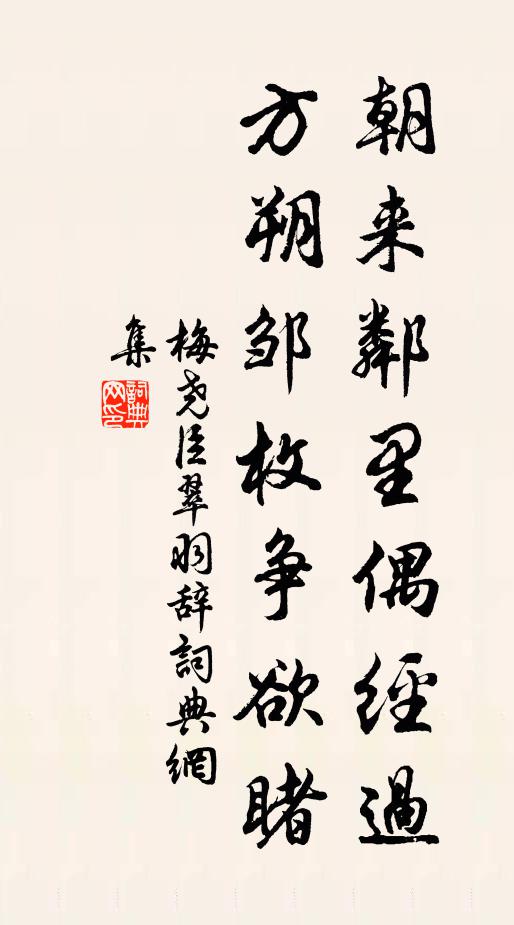 朝来鄰里偶經過
方朔邹枚争欲睹
梅尧臣翠羽辞詞典網
集
詞典網印